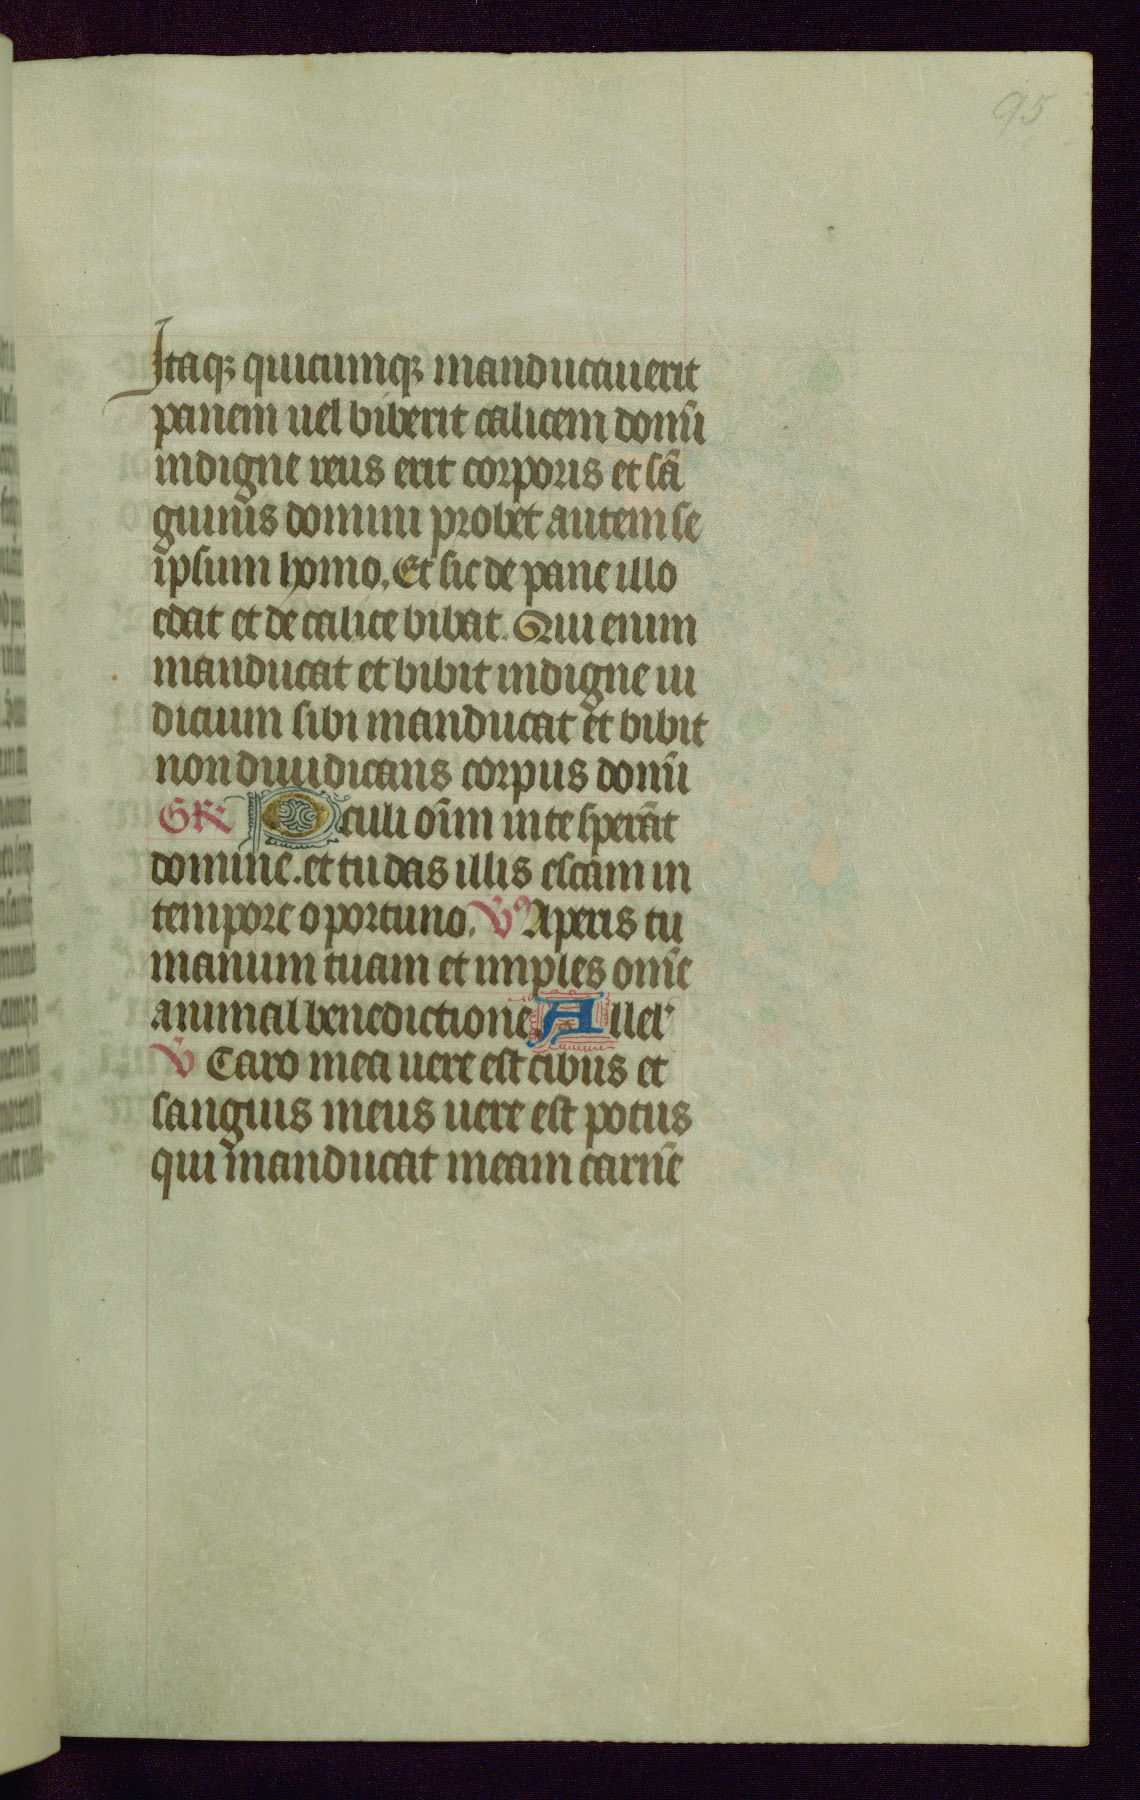 95
Itaqꝫ quicumqꝫ manducauerit
panem uel biberit calicem domi̅
indigne reus erit corporis et sa̅
guinis domini probet autem se
ipsum homo. Et sic de pane illo
edat et de calice bibat. Qui enim
manducat et bibit indigne iu
dicium sibi manducat et bibit
non diiudicans corpus domi̅
GR̅ Oculi oi̅m in te spera̅t
domine. et tu das illis escam in
tempore oportuno. V̅ Aperis tu
manum tuam et imples om̅e
animal benedictione. Allel'
V̅ Caro mea uere est cibus et
sanguis meus uere est potus
qui manducat meam carne̅